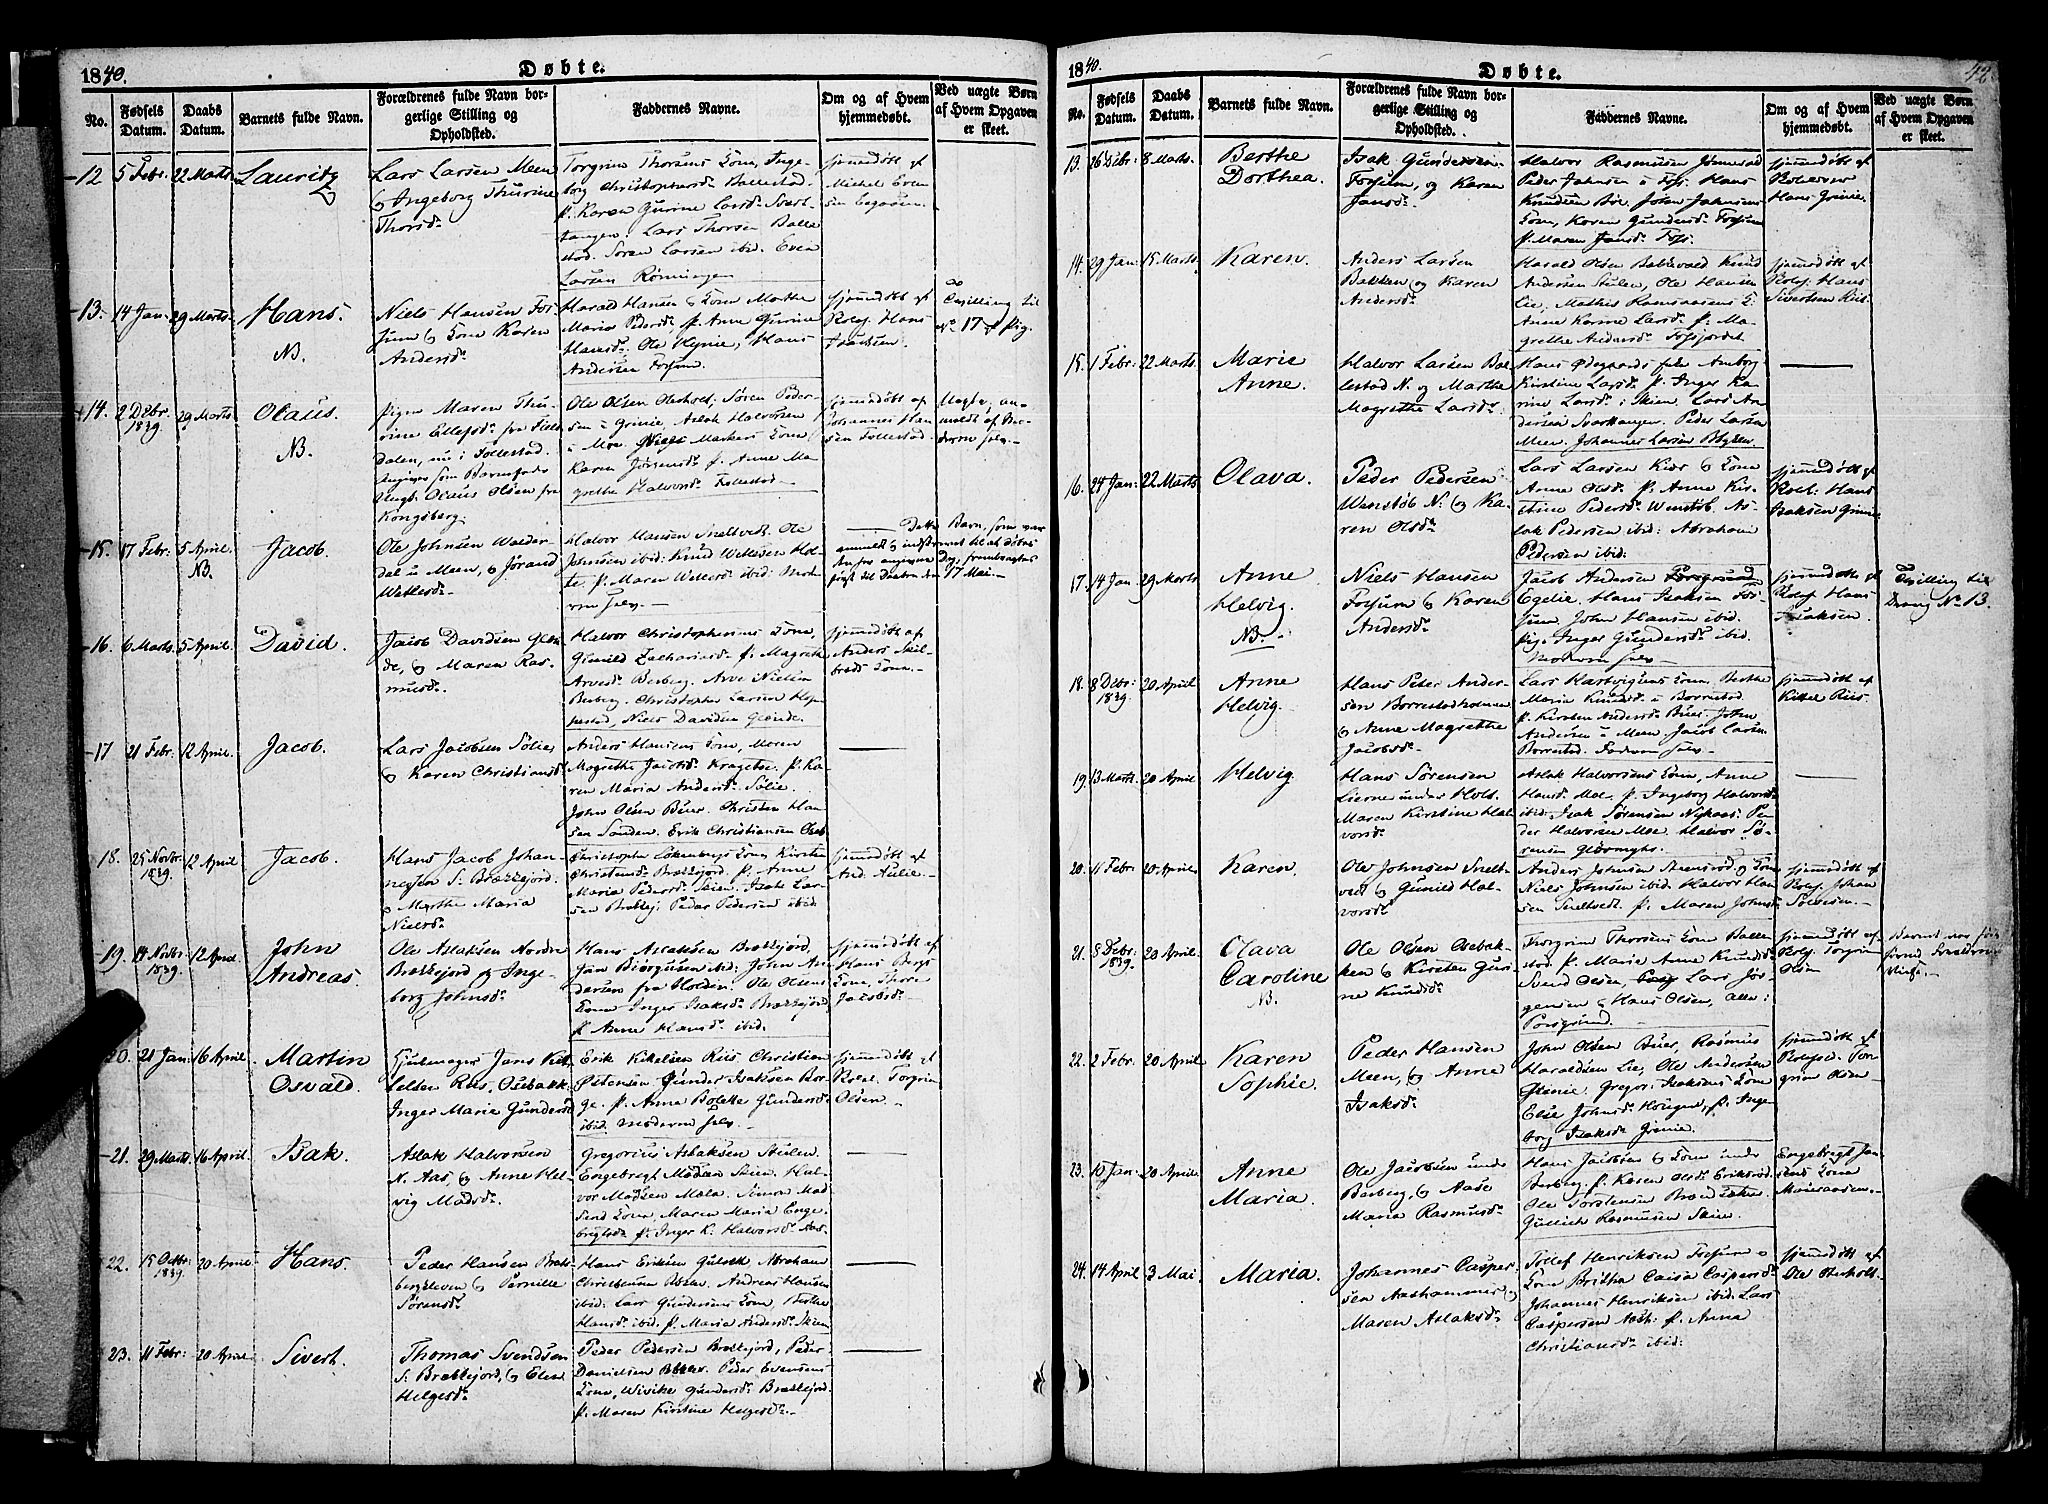 1840.
Døbte.
No.
Fødsels Datum.
Daabs Datum.
Barnets fulde Navn.
Forældrenes fulde Navn bor-
gerlige Stilling og
Opholdsted.
Faddernes Navne.
Om og af Hvem
hjemmedøbt.
Ved uægte Børn
af Hvem Opgaven
er skeet.
12 5 Febr. 22 Marts Lauritz
Lars Larsen Meen
& Ingeborg Thurine
Thorsd.
Torgrim Thorsens Kone, Inge-
borg Christophersd. Ballestad
p. Karen Gurine Larsd. Svart-
tangen. Lars Thorsen Balle
stad. Soren Larsen ibid. Even
Larsen Rönningen
hjemmedöbt af
Michel Even
sen
13. 14 Jan. 29 Marts Hans.
NB.
Niels Hansen Fos-
sum & Kone Karen
Andersd.
Harald Hansen & Kone Marthe
Maria Pedersd. p. Anne Gurine
Hansd. Ole Hynie, Hans
Andersen Fossum.
hjemmedöbt af
Kolej. Hans
Isaksen.
Tvilling til
No 17 af Pig.
14. 2 Debr. 1839. 29 Marts Olaus.
NB.
Pigen Maren Thu-
rine Ellefsd. fra
Dalen, nu i Follestad.
Angiver som Barnefader
Ungk. Olaus Olsen fra
Kongsberg.
Ole Olsen Oleholt, Sören Peder-
sen i Grinie, Aslak Halvorsen
i Moe. Niels Markers Kone,
Karen Jörgensd. p. Anne Ma-
grethe Halvorsd. Follestad
hjemmedöbt af
Johannes Han
sen Follestad.
Uægte, an-
meldt af Mo-
deren selv.
15. 17 Febr. 5 April. NB. Jacob.
Ole Johnsen Walder-
dal u Meen, & Jörand
Wetlesd.
Halvor Hansen Sneltvedt. Ole
Johnsen ibid: Knud Wetlesen Hol-
te p. Maren Wetlesd. ibid: Mod-
ren selv.
Dette Barn, som var
anmeldt & indskrevet til at döbes
den for angivne Dag, frembragtes
först til Daaben den 17 Mai.
16. 6 Marts 5 April. David.
Jacob Davidsen Glen-
de, & Maren Ras-
musd.
Halvor Christophersens Kone,
Gunild Zachariasd. p. Magrethe
Arvesd. Berberg. Arve Nielsen
Berberg. Christopher Larsen
Niels Davidsen Glende.
hjemmedöbt af
Anders Skil-
breds Kone.
17 21 Febr. 12 April. Jacob.
Lars Jacobsen Sölie
& Karen Christiansd.
Anders Hansens Kone, Maren
Magrethe Jacobsd. Kragetse. p. Ka
ren Maria Andersd. Sölie.
John Olsen Buer. Christen Han
sen Sanden. Erik Christiansen
18. 25 Novbr. 1839. 12 April Jacob.
Hans Jacob Johan-
nessen S. Brækkejord.
& Marthe Maria
Nielsd.
Christopher Kones Kirsten
Christensd. Brækkejord. p. Anne
Maria Pedersd. Skien. Isak Lar-
sen Brækkej. Peder Pedersen ibid.
hjemmedöbt af
And. Aulie.
19. 14 Novbr. 1839. 12 April John
Andreas.
Ole Aslaksen Nordre
Brækkejord & Inge-
borg Johnsd.
Hans Aslaksen Brækkejord,
Jan Biörgusen ibid: John An
dersen fra Holden. Ole Olsens
Kone Inger Isaksd. Brækkejord
p. Anne Hansd. ibid.
hjemmedöbt af
Hans Bergs
Kone, Thore
Jacobsd.
20. 21 Jan. 16 April Martin
Osvald.
Hjulmager Jans Kit-
telsen Riis, Osebakk.
Inger Marie Gundersd.
Erik Kikelsen Riis, Christian
Östensen Gunder Isaksen Bor-
ge. p. Anne Bolette Gundersd.
ibid. Moderen selv.
hjemmedöbt af
Kolej. Torgrim
Olsen.
21. 29 Marts 16 April. Isak.
Aslak Halvorsen
N. Aas, & Anne Hel-
vig Madsd.
Gregorius Aslaksen Aulien.
Engebregt Madsen Skien. Hal-
vor Madsen Mæla. Simon Mad
sens Kone, Maren Maria Enge
bregtsd. p. Inger K. Halvorsd. Aas.
22. 15 Octbr. 1839. 20 April Hans.
Peder Hansen Brats-
bergkleven & Pernille
Sörensd.
Hans Eriksen Gulseth, Abraham
Christensen Andreas Hansen
ibid: Lars Gundersens Kone, Berthe
Hansd. ibid. p. Maria Andersd. Skien
23. 11 Febr. 20 April Sivert.
Thomas Svendsen
S. Brækkejord, & Elen
Helgesd.
Peder Pedersen Brækkejord, Peder
Danielsen Peder Evensens
Kone, Wivike Gundersd. Brækkejord.
p. Maren Kirstine Helgesd.
1840.
Døbte.
42
No.
Fødsels Datum.
Daabs Datum.
Barnets fulde Navn.
Forældrenes fulde Navn bor-
gerlige Stilling og
Opholdsted.
Faddernes Navne.
Om og af Hvem
hjemmedøbt.
Ved uægte Børn
af Hvem Opgaven
er skeet.
13. 26 Febr. 8 Marts. Berthe
Dorthea.
Isak Gundersen
Fossum, og Karen
Jansd.
Halvor Rasmusen
Peder Jahnsen i Foss. Hans
Knudsen Böe. John Johnsens
Kone, Karen Gundersd. Fossum
p. Maren Jansd. Foss.
hjemmedöbt af
Hans Grinie.
14. 29 Jan. 15 Marts Karen.
Anders Larsen
Bakken & Karen
Andersd.
Harald Olsen Knud
Andersen Ole Hansen
Lie, Mathis Rasmussens K.
Anne Karine Larsd. p. Ma-
grethe Andersd. Fossjordet
hjemmedöbt af
Kolej. Hans
Sivertsen Riis.
15. 1 Febr. 22 Marts. Marie
Anne.
Halvor Larsen Bal-
lestad N. og Marthe
Magrethe Larsd.
Hans Ödegaards
Kirstine Larsd. p. Inger Ka-
rine Larsd. i Skien. Lars An
dersen Svarttangen. Peder Larsen
Meen. Johannes Larsen
16. 24 Jan. 22 Marts Olava.
Peder Pedersen
Wenstöb N. & Ka-
ren Olsd.
Lars Larsen Kiær & Kone
Anne Olsd. p. Anne Kir-
stine Pedersd. Wenstöb. As-
lak Pedersen ibid: Abraham
Pedersen ibid:
hjemmedöbt af
Kolej. Hans
Isaksen Grinie
17. 14 Jan. 29 Marts Anne
Helvig.
NB.
Niels Hansen
Fossum & Karen
Andersd.
Jacob Andersen Porsgrund
Egelie. Hans Isaksen Fos-
sum, John Hansen ibid.
Pig. Inger Gundersd. ibid.
Moderen selv
hjemmedöbt af
Kolej. Hans
Isaksen.
Tvilling til
Dreng No 13.
18. 8 Debr. 1839. 20 April Anne
Helvig.
Hans Peder Ander-
sen Borrestadholmen
& Anne Magrethe
Jacobsd.
Lars Hartvigsens Kone, Berthe
Maria Knudsd. i Borrestad
p. Kirsten Andersd. Buer. John
Andersen i Meen. Jacob Larsen
Borrestad. Faderen selv
hjemmedöbt af
Kittel Riis.
19. 13 Marts. 20 April Helvig
Hans Sörensen
Lierne under Holt.
Maren Kirstine Hal-
vorsd.
Aslak Halvorsens Kone, Anne
Hansd. Moe. p. Ingeborg Halvorsd.
ibid: Isak Sörensen Nykaas: Pe-
der Halvorsen Moe. Halvor Sö-
rensen Glörmyhr.
20. 11 Febr. 20 April Karen
Ole Johnsen Snelt-
vedt & Gunild Hal-
vorsd.
Anders Johnsen Stensrød & Kone
Niels Johnsen ibid. Halvor Han
sen Sneltvedt. p. Maren Johnsd.
hjemmedöbt af
Kolej. Johan
Solvesen.
21. 8 Debr. 1839. 20 April Olava
Caroline
NB.
Ole Olsen Osebak-
ken & Kirsten Guri-
ne Knudsd.
Thorgrim Thorsens Kone Balle
stad. p. Maria Anne Knudsd.
Svend Olsen, Lars Jör-
gensen & Hans Olsen, alle i
Porsgrund.
hjemmedöbt af
Kolej. Torgrim
Olsen
22. 2 Febr. 20 April Karen
Sophie.
Peder Hansen
Meen, & Anne
Isaksd.
John Olsen Buer, Rasmus
Haraldsen Lie, Ole Andersen
Grinie. Gregor: Isaksens Kone
Else Johnsd. Hougen, p. Inge-
borg Isaksd. Grinie.
hjemmedöbt af
Kolej. Tor-
grim Olsen
23. 10 Jan. 20 April Anne
Maria.
Ole Jacobsen under
Berberg, & Aase
Maria Rasmusd.
Hans Jacobsen & Kone under
Berberg. p. Karen Olsd. Eriksröd
Ole Torstensen
Gullich Rasmussen Skien.
Engebregt Jan
sens Kone
24. 14 April 3 Mai Maria.
Johannes Casper-
sen Aashammer &
Maren Aslaksd.
Tollef Henriksen Fossum &
Kone Britha Caisa Caspersd.
Johannes Henriksen ibid: Lars
Caspersen Aash. p. Anna
Christiansd. ibid:
hjemmedöbt af
Ole Aasholt.